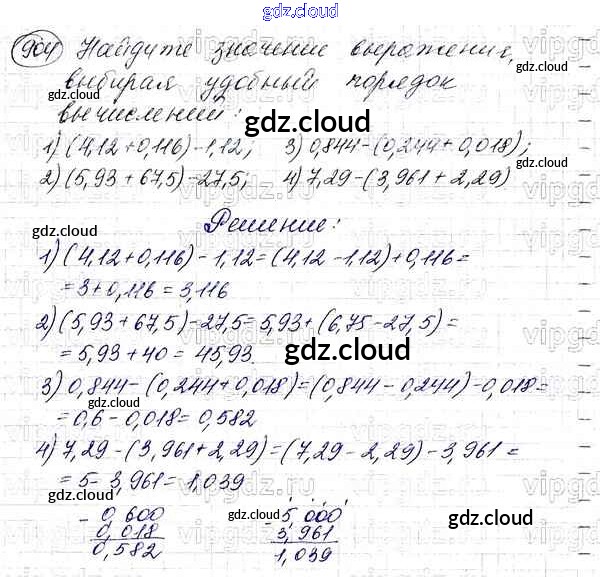 gdz.cloud
904 Найдите значение выражения,
выбирая удобный порядок
вычислений:
gdz.cloud
1) (4,12+0,116)-1,12; 3) 0,844-(0,244+0,018);
gdz.cloud
2) (5,93+67,5)-27,5; 4) 7,29-(3,961+2,29)
gdz.cloud
Решение:
gdz.cloud
1) (4,12+0,116)-1,12=(4,12-1,12)+0,116=
=3+0,116=3,116
2) (5,93+67,5)-27,5=5,93+(6,75-27,5)=
=5,93+40=45,93.
gdz.cloud
3) 0,844-(0,244+0,018)=(0,844-0,244)-0,018=
gdz.cloud
=0,6-0,018=0,582
4) 7,29-(3,961+2,29)=(7,29-2,29)-3,961=
=5-3,961=1,039
gdz.cloud
-0,600 -5,000
gdz.cloud gdz.cloud
0,018 3,961
0,582 1,039
gdz.cloud